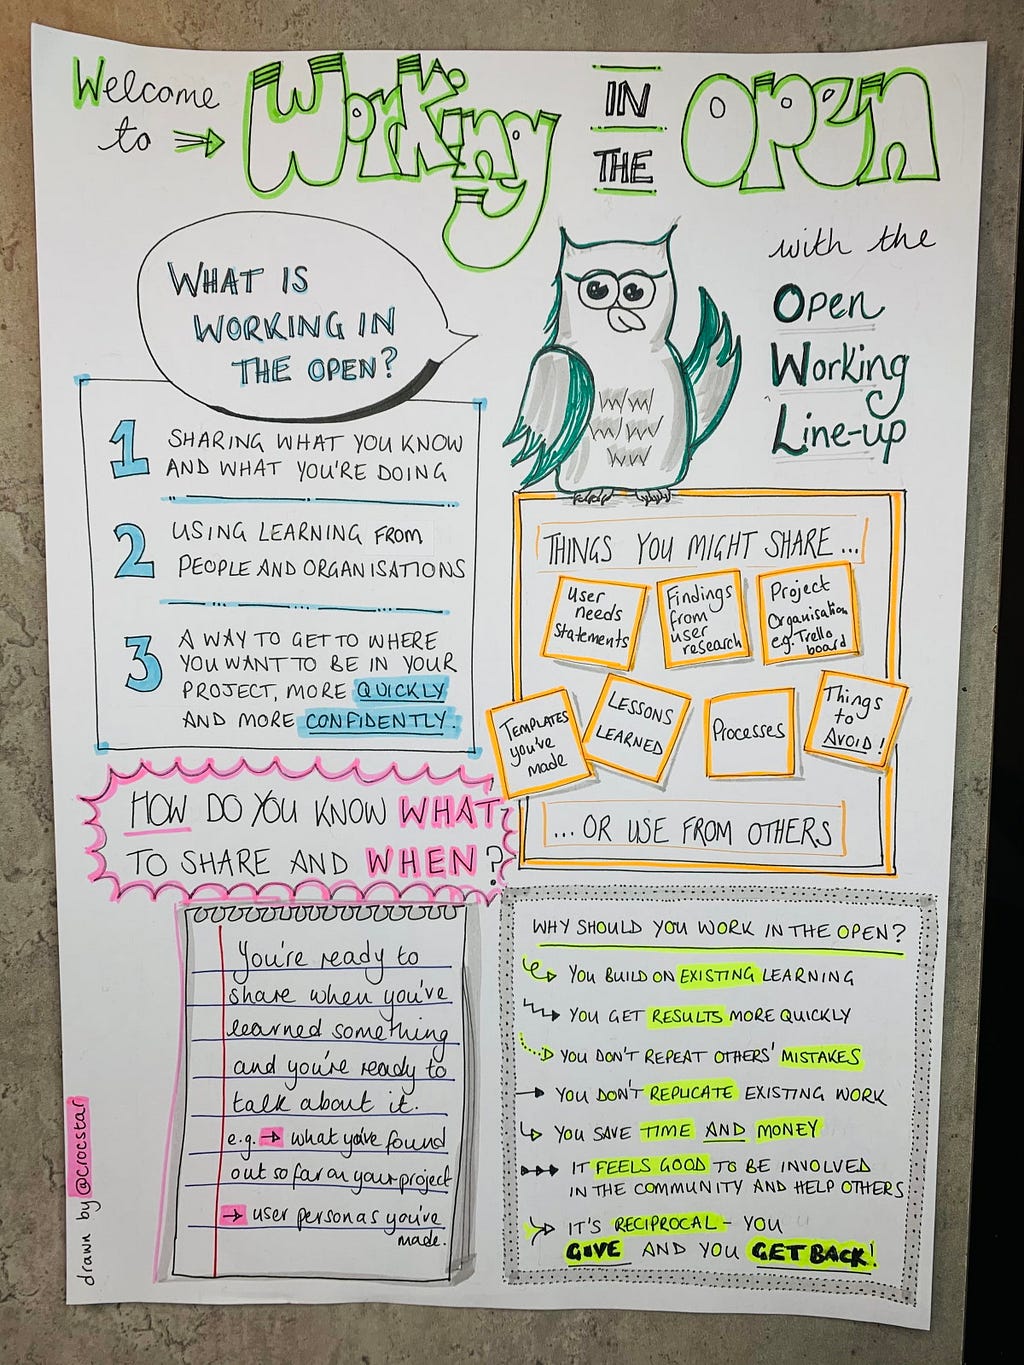 Welcome
to
Working
IN
THE
OPEN
with the
Open
Working
Line-up
WHAT IS
WORKING IN
THE OPEN?
1 SHARING WHAT YOU KNOW
AND WHAT YOU'RE DOING
2 USING LEARNING FROM
PEOPLE AND ORGANISATIONS
3 A WAY TO GET TO WHERE
YOU WANT TO BE IN YOUR
PROJECT, MORE QUICKLY
AND MORE CONFIDENTLY.
THINGS YOU MIGHT SHARE...
User
needs
statements
Findings
from
user
research
Project
Organisation
e.g. Trello
board
TEMPLATES
you've
made
LESSONS
LEARNED
Processes
Things
to
AVOID!
...OR USE FROM OTHERS
HOW DO YOU KNOW WHAT
TO SHARE AND WHEN?
You're ready to
share when you've
learned something
and you're ready to
talk about it.
e.g. → what you've found
out so far on your project
→ user personas you've
made.
WHY SHOULD YOU WORK IN THE OPEN?
YOU BUILD ON EXISTING LEARNING
YOU GET RESULTS MORE QUICKLY
YOU DON'T REPEAT OTHERS' MISTAKES
YOU DON'T REPLICATE EXISTING WORK
YOU SAVE TIME AND MONEY
IT FEELS GOOD TO BE INVOLVED
IN THE COMMUNITY AND HELP OTHERS
IT'S RECIPROCAL - YOU
GIVE AND YOU GET BACK!
drawn by @crocstar